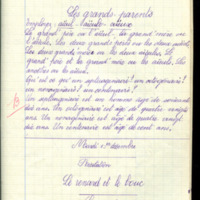 Les grands-parents
Employer : aïeul - aïeuls - aïeux
Le grand père ou l'aïeul. La grand'mère ou
l'aïeule. Les deux grands pères ou les deux aïeuls.
Les deux grands mères ou les deux aïeules. Le
grand père et la grand'mère ou les aïeuls. Les
ancêtres ou les aïeux.
Qu'est ce qu'un septuagénaire ? un octogénaire ?
un nonagénaire ? un centenaire ?
Un septuagénaire est un homme âgé de soixante
dix ans. Un octogénaire est âgé de quatre vingts
ans. Un nonagénaire est âgé de quatre vingt
dix ans. Un centenaire est âgé de cent ans.
Mardi 1er décembre
Récitation
Le renard et le bouc